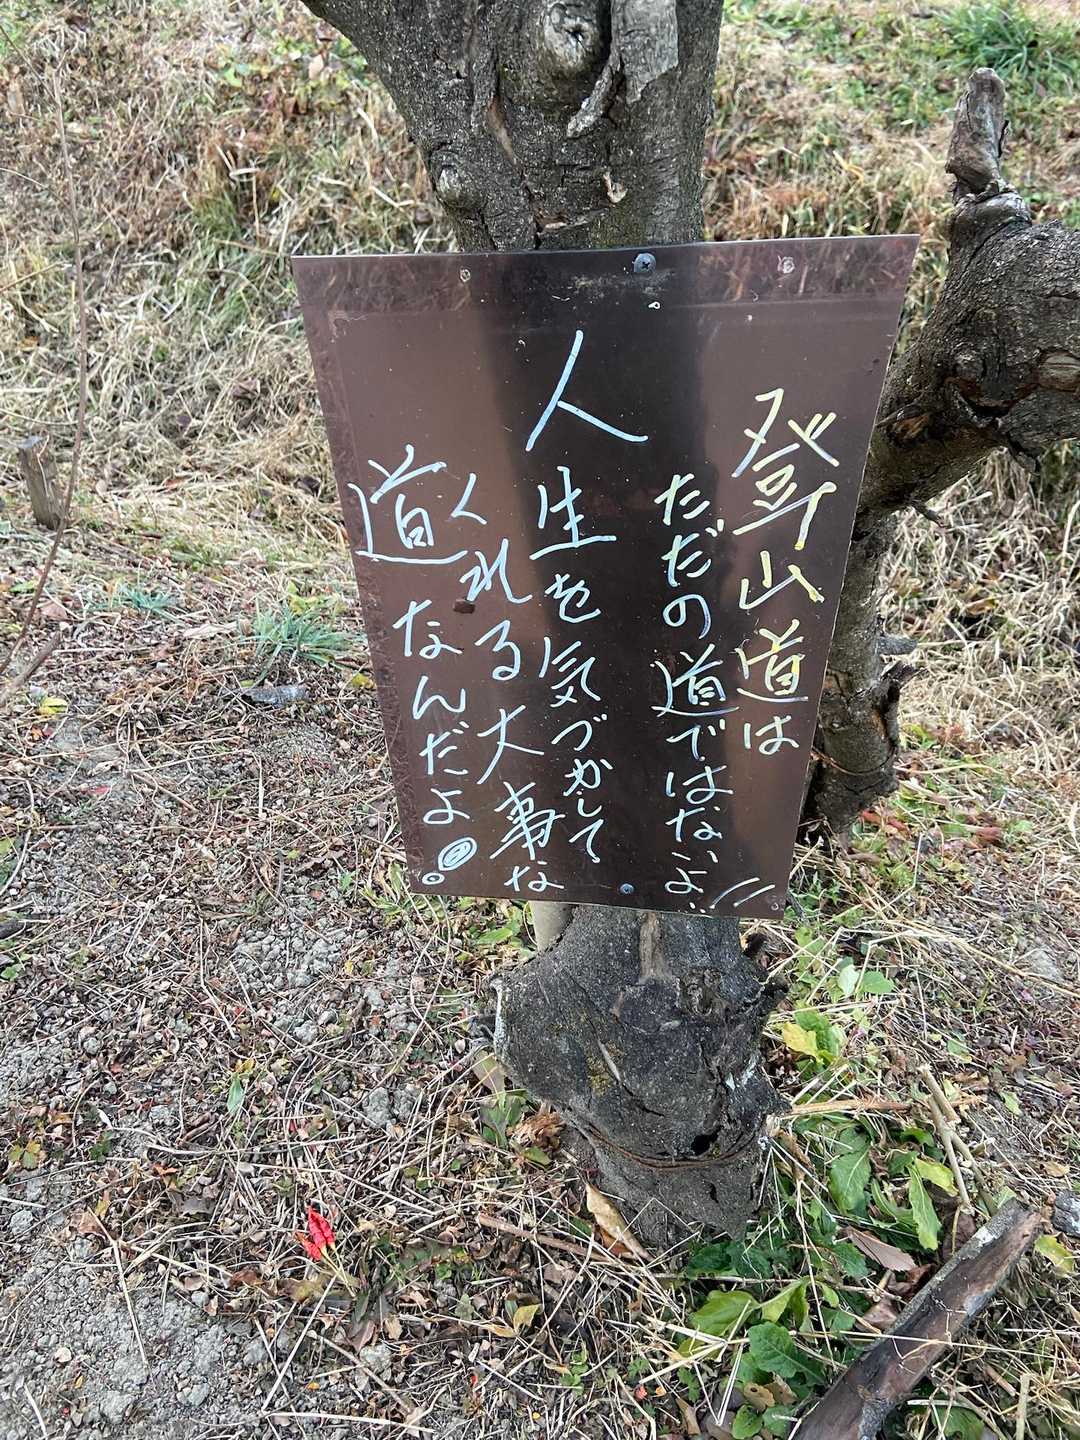 登山道は
ただの道ではないよ‼
人生を気づかして
くれる大事な
道なんだよ!